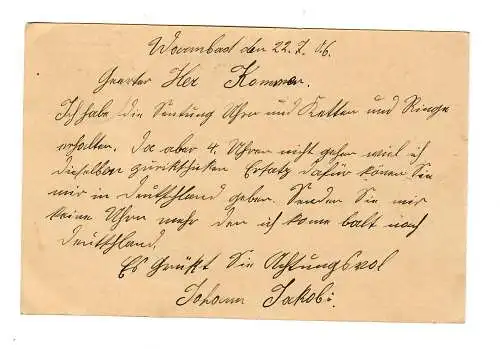 Warmbad den 22.7.06.
Geerter Her Kommer.
Ich habe die Sentung Uhren und Ketten und Ringe
erhalten. Da aber 4. Uhren nicht gehen wiel ich
dieselben zurikschicken Ersatz dafür könen Sie
mir in Deutschland geben. Senden Sie mir
keine Uhren mehr den ich kome balt nach
Deutschland.
Es Grüßt Sie Achtungsvol
Johann Jakobi.